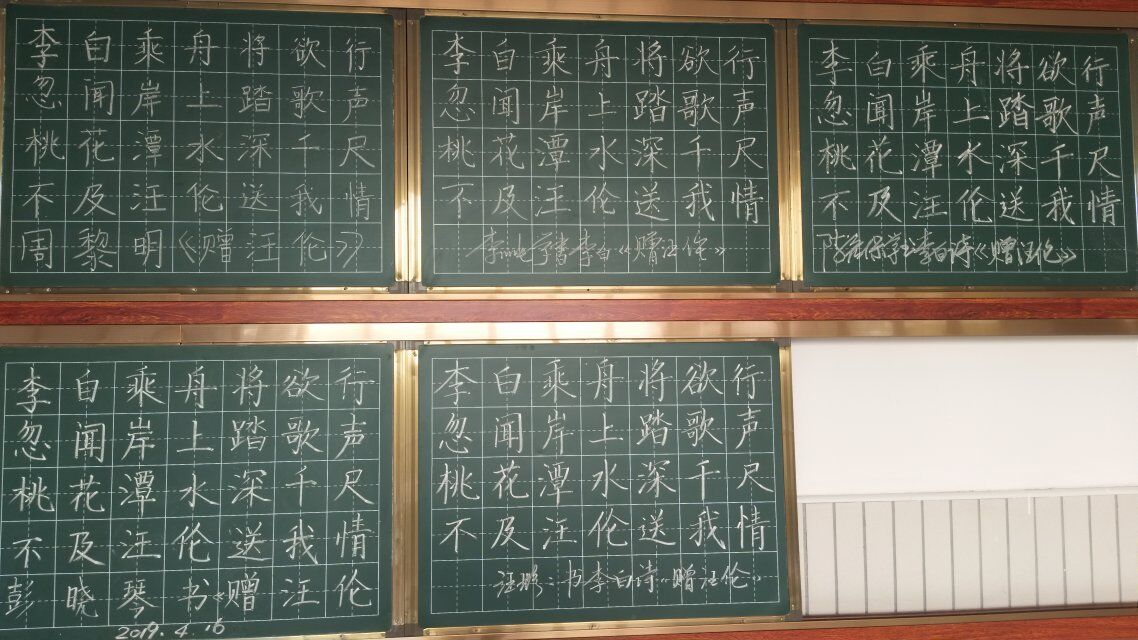 李白乘舟将欲行
忽闻岸上踏歌声
桃花潭水深千尺
不及汪伦送我情
周黎明《赠汪伦》
李白乘舟将欲行
忽闻岸上踏歌声
桃花潭水深千尺
不及汪伦送我情
李白《赠汪伦》
李白乘舟将欲行
忽闻岸上踏歌声
桃花潭水深千尺
不及汪伦送我情
李白诗《赠汪伦》
李白乘舟将欲行
忽闻岸上踏歌声
桃花潭水深千尺
不及汪伦送我情
彭晓琴书《赠汪伦
2019.4.16
李白乘舟将欲行
忽闻岸上踏歌声
桃花潭水深千尺
不及汪伦送我情
书李白诗《赠汪伦》